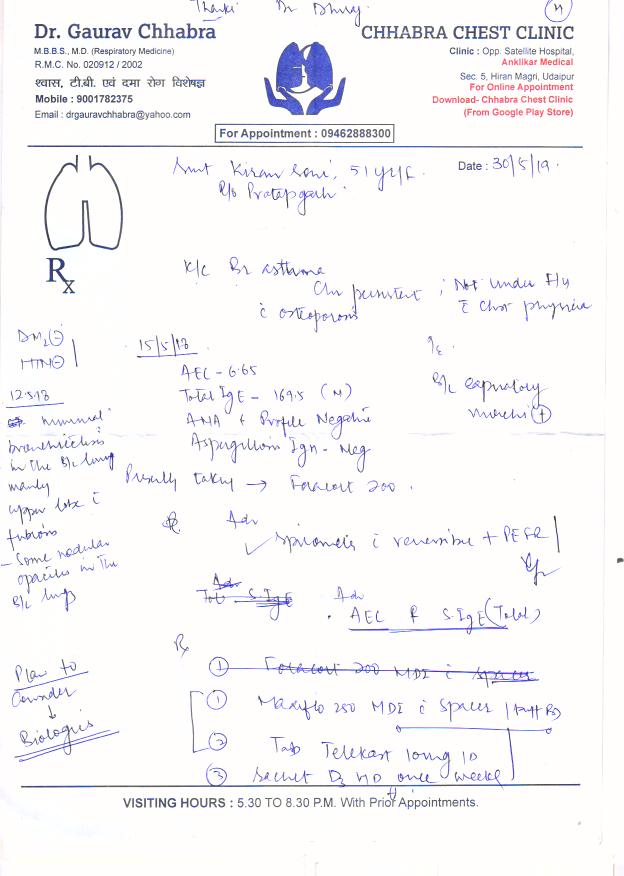 Thanks Dr Dhiraj
Dr. Gaurav Chhabra
M.B.B.S., M.D. (Respiratory Medicine)
R.M.C. No. 020912 / 2002
श्वास, टी.बी. एवं दमा रोग विशेषज्ञ
Mobile : 9001782375
Email : drgauravchhabra@yahoo.com
CHHABRA CHEST CLINIC
Clinic : Opp. Satellite Hospital,
Anklikar Medical
Sec. 5, Hiran Magri, Udaipur
For Online Appointment
Download- Chhabra Chest Clinic
(From Google Play Store)
For Appointment : 09462888300
Smt Kiran Soni, 51 yr/F
R/o Pratapgarh
Date : 30/5/19.
Rx
K/C Br asthma
Chr persistent ; Not under
c osteoporosis
c Chest physician
DM2 ⊖
HTN ⊖
15/5/18
AEC - 6.65
Total IgE - 169.5 (N)
ANA + Profile Negative
Aspergillus Ign - Neg
B/L expiratory
ronchi (+)
minimal
bronchiectasis
in the B/L lung
mainly
upper lobe c
fibrosis
- Some nodular
opacities in the
B/L lungs
Presently taking → Foracort 200.
Adv
✓ spirometry c reversible + PEFR
Adv
S. IgE
Adv
. AEC & S. IgE (Total)
Plan to
Consider
↓
Biologics
Rx
① Foracort 200 MDI c spacer
① Maxiflo 250 MDI c Spacer
② Tab Telekast 10mg
③ Sachet D3 once weekly
VISITING HOURS : 5.30 TO 8.30 P.M. With Prior Appointments.